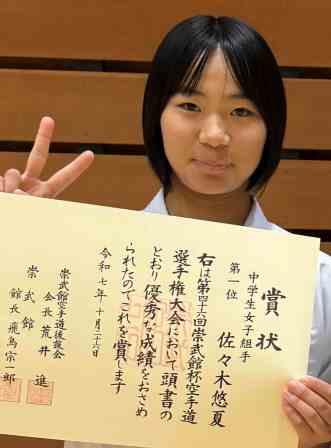 賞状
中学生女子組手
第一位
佐々木悠夏
右は第四十六回崇武館杯空手道
選手権大会において頭書の
とおり優秀な成績をおさめ
られたのでこれを賞します
令和七年十月二十六日
崇武館空手道後援会
会長 荒井 進
崇武館
館長 飛鳥宗一郎